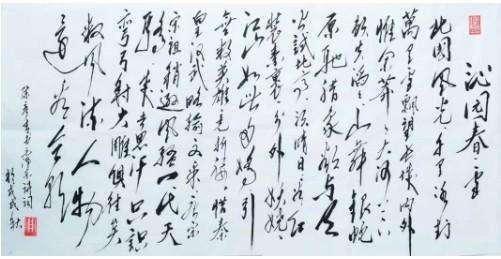 沁园春雪
北国风光千里冰封
万里雪飘望长城内外
惟余莽莽大河上下
顿失滔滔山舞银蛇
原驰腊象欲与天
公试比高须晴日看红
装素裹分外妖娆
江山如此多娇引
无数英雄竞折腰惜秦
皇汉武略输文采唐宗
宋祖稍逊风骚一代天
骄成吉思汗只识
弯弓射大雕俱往矣
数风流人物
还看今朝
书毛泽东诗词
于戊戌秋